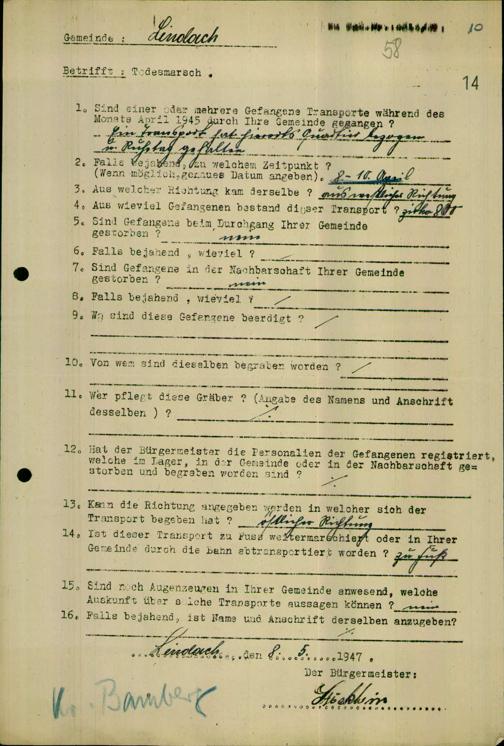 10
Gemeinde : Lindach
58
Betrifft : Todesmarsch .
14
1. Sind einer oder mehrere Gefangene Transporte während des
Monats April 1945 durch Ihre Gemeinde gegangen ?
Ein Transport hat hierorts Quartier bezogen
u. Rasttag gehalten
2. Falls bejahend, zu welchem Zeitpunkt ?
(Wenn möglich, genaues Datum angeben). 8 - 10. April
3. Aus welcher Richtung kam derselbe ? aus westlicher Richtung
4. Aus wieviel Gefangenen bestand dieser Transport ? zirka 800
5. Sind Gefangene beim Durchgang Ihrer Gemeinde
gestorben ? nein
6. Falls bejahend , wieviel ? /
7. Sind Gefangene in der Nachbarschaft Ihrer Gemeinde
gestorben ? nein
8. Falls bejahend , wieviel ? /
9. Wo sind diese Gefangene beerdigt ? /
10. Von wem sind dieselben begraben worden ? /
11. Wer pflegt diese Gräber ? (Angabe des Namens und Anschrift
desselben ) ? ./.
12. Hat der Bürgermeister die Personalien der Gefangenen registriert,
welche im Lager, in der Gemeinde oder in der Nachbarschaft ge=
storben und begraben worden sind ? ./.
13. Kann die Richtung angegeben werden in welcher sich der
Transport begeben hat ? östlicher Richtung
14. Ist dieser Transport zu Fuss weitermarschiert oder in Ihrer
Gemeinde durch die Bahn abtransportiert worden ? zu Fuß
15. Sind noch Augenzeugen in Ihrer Gemeinde anwesend, welche
Auskunft über solche Transporte aussagen können ? nein
16. Falls bejahend, ist Name und Anschrift derselben anzugeben?
./.
Lindach, den 8. 5. 1947 .
Der Bürgermeister:
Kr. Bamberg